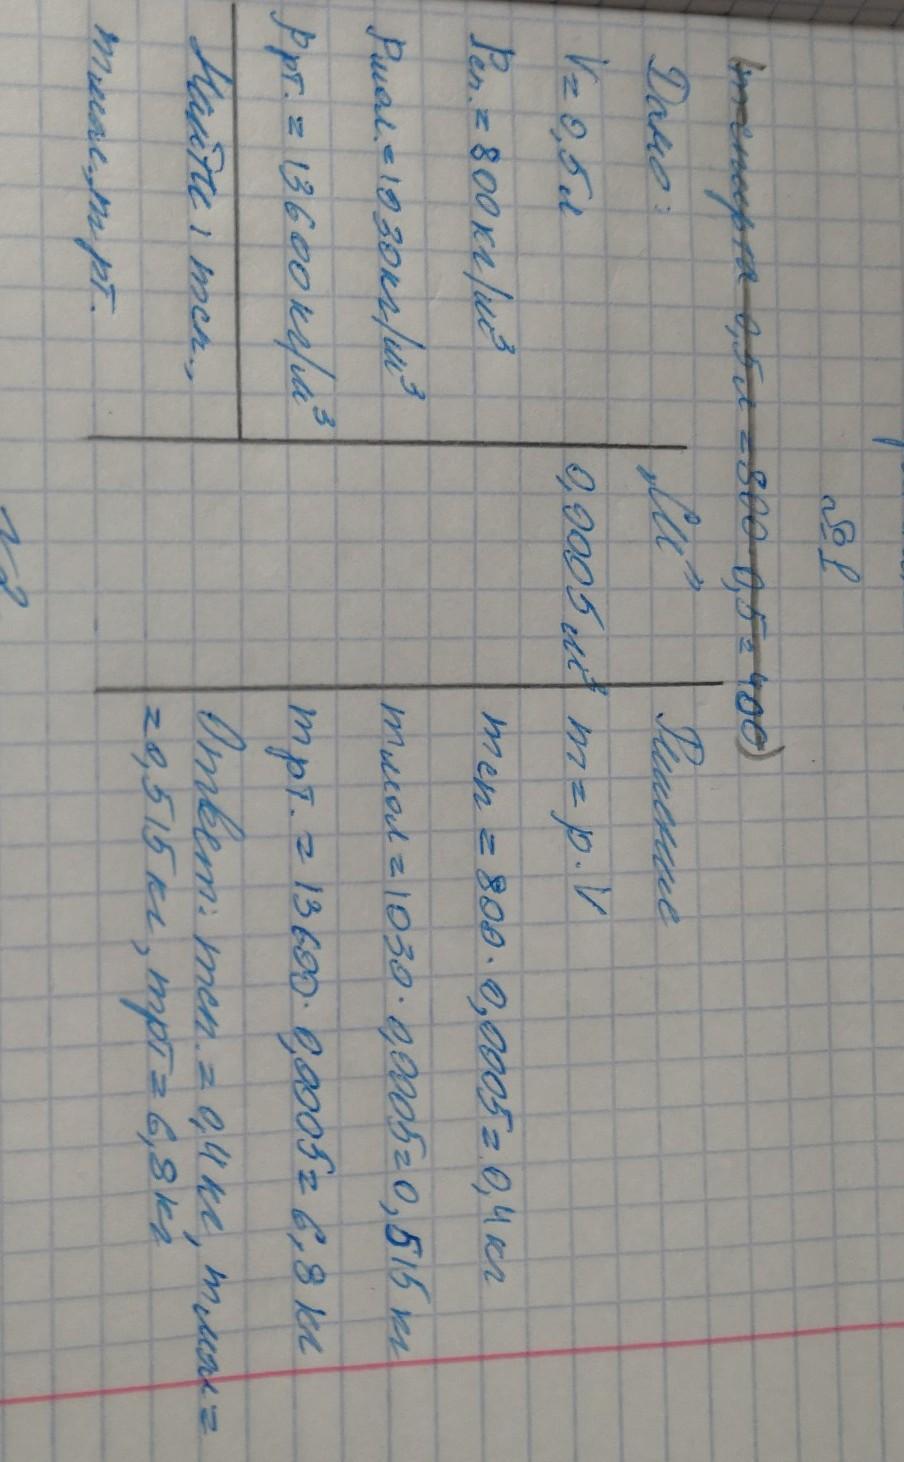 №1
(mспирта 0,5л = 800 · 0,5 = 400)
Дано:
V = 0,5л
ρсп. = 800кг/м³
ρмол. = 1030кг/м³
ρрт. = 13600кг/м³
Найти: mсп.,
mмол., mрт.
"СИ"
0,0005 м³
Решение
m = ρ · V
mсп = 800 · 0,0005 = 0,4 кг
mмол = 1030 · 0,0005 = 0,515 кг
mрт. = 13600 · 0,0005 = 6,8 кг
Ответ: mсп. = 0,4 кг, mмол =
= 0,515 кг, mрт = 6,8 кг